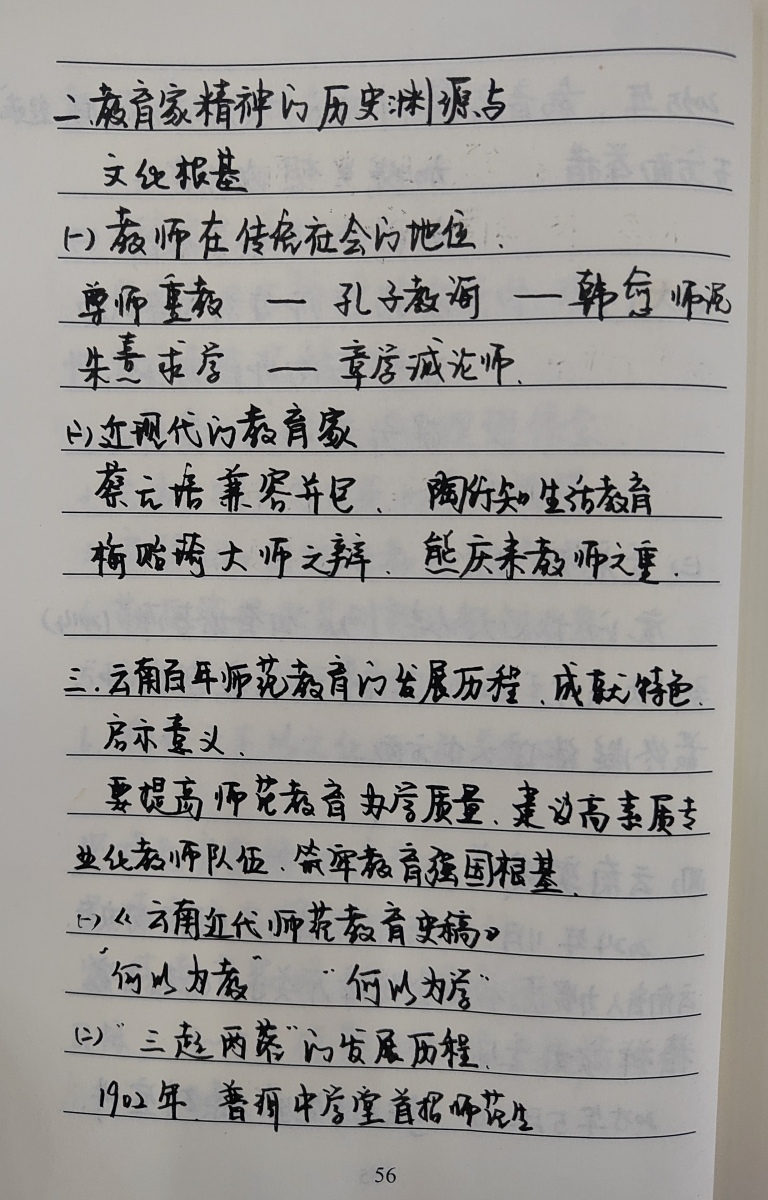 二.教育家精神的历史渊源与
文化根基
(一)教师在传统社会的地位.
尊师重教 — 孔子教泗 — 韩愈师说
朱熹求学 — 章学诚论师.
(二)近现代的教育家
蔡元培兼容并包. 陶行知生活教育
梅贻琦大师之辩. 熊庆来教师之重.
三.云南百年师范教育的发展历程、成就特色.
启示意义.
要提高师范教育办学质量、建设高素质专
业化教师队伍、筑牢教育强国根基.
(一)《云南近代师范教育史稿》
“何以为教” “何以为学”
(二)“三起两落”的发展历程.
1902年.普洱中学堂首招师范生
56